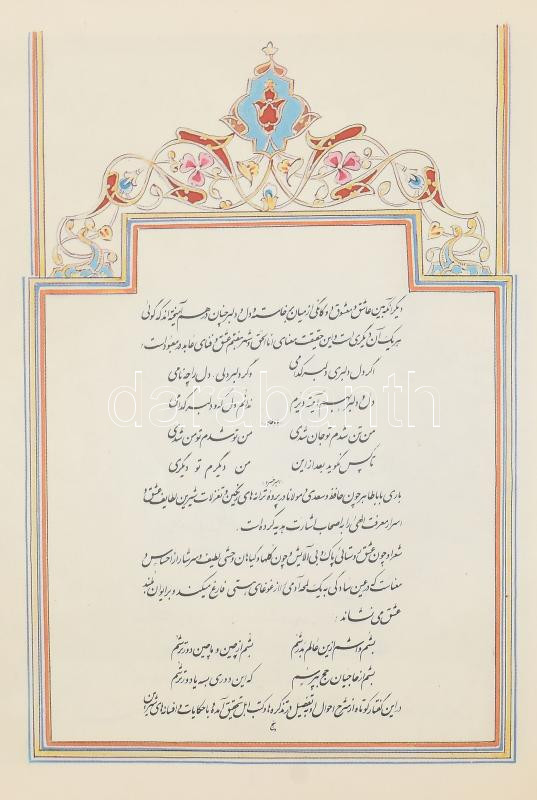 دیگر آنکه بین عاشق و معشوق دوگانگی از میان برخاسته و دل و دلبر چنان در هم آمیخته اند که گوئی
هر یک آن دیگری است و این حقیقت معنای اناالحق و شهر هفتم عشق و فنای عابد در معبود است :
اگر دل دلبری دلبر کدامی
وگر دلبر دلی دل را چه نامی
دل و دلبر بهم آمیته دیرم
ندانم دل که و دلبر کدامی
من تن شدم تو جان شدی
من تو شدم تو من شدی
تا کس نگوید بعد از این
من دیگرم تو دیگری
باری باباطاهر چون حافظ و سعدی و مولانا در پرده ترانه های رنگین و تغزلات شیرین لطایف عشق و
اسرار معرفت الهی را به اصحاب اشارت هدیه کرده است .
شعر او چون عشق روستائی پاک و بی آلایش و چون گلها و گیاهان وحشی لطیف و سرشار از احساس و
صفاست که در عین سادگی به یک لمحه آدمی را از غوغای هستی فارغ میکند و بر ایوان بلند
عشق می نشاند :
بشم واشم ازین عالم بدر شم
بشم از چین و ماچین دورتر شم
بشم از حاجیان حج بپرسم
که این دوری بسه یا دورتر شم
در این گفتار کوتاه از شرح احوال او به تفصیل در تذکره ها و کتب اهل تحقیق آمده و با حکایات و افسانه های شیرین
darabanth